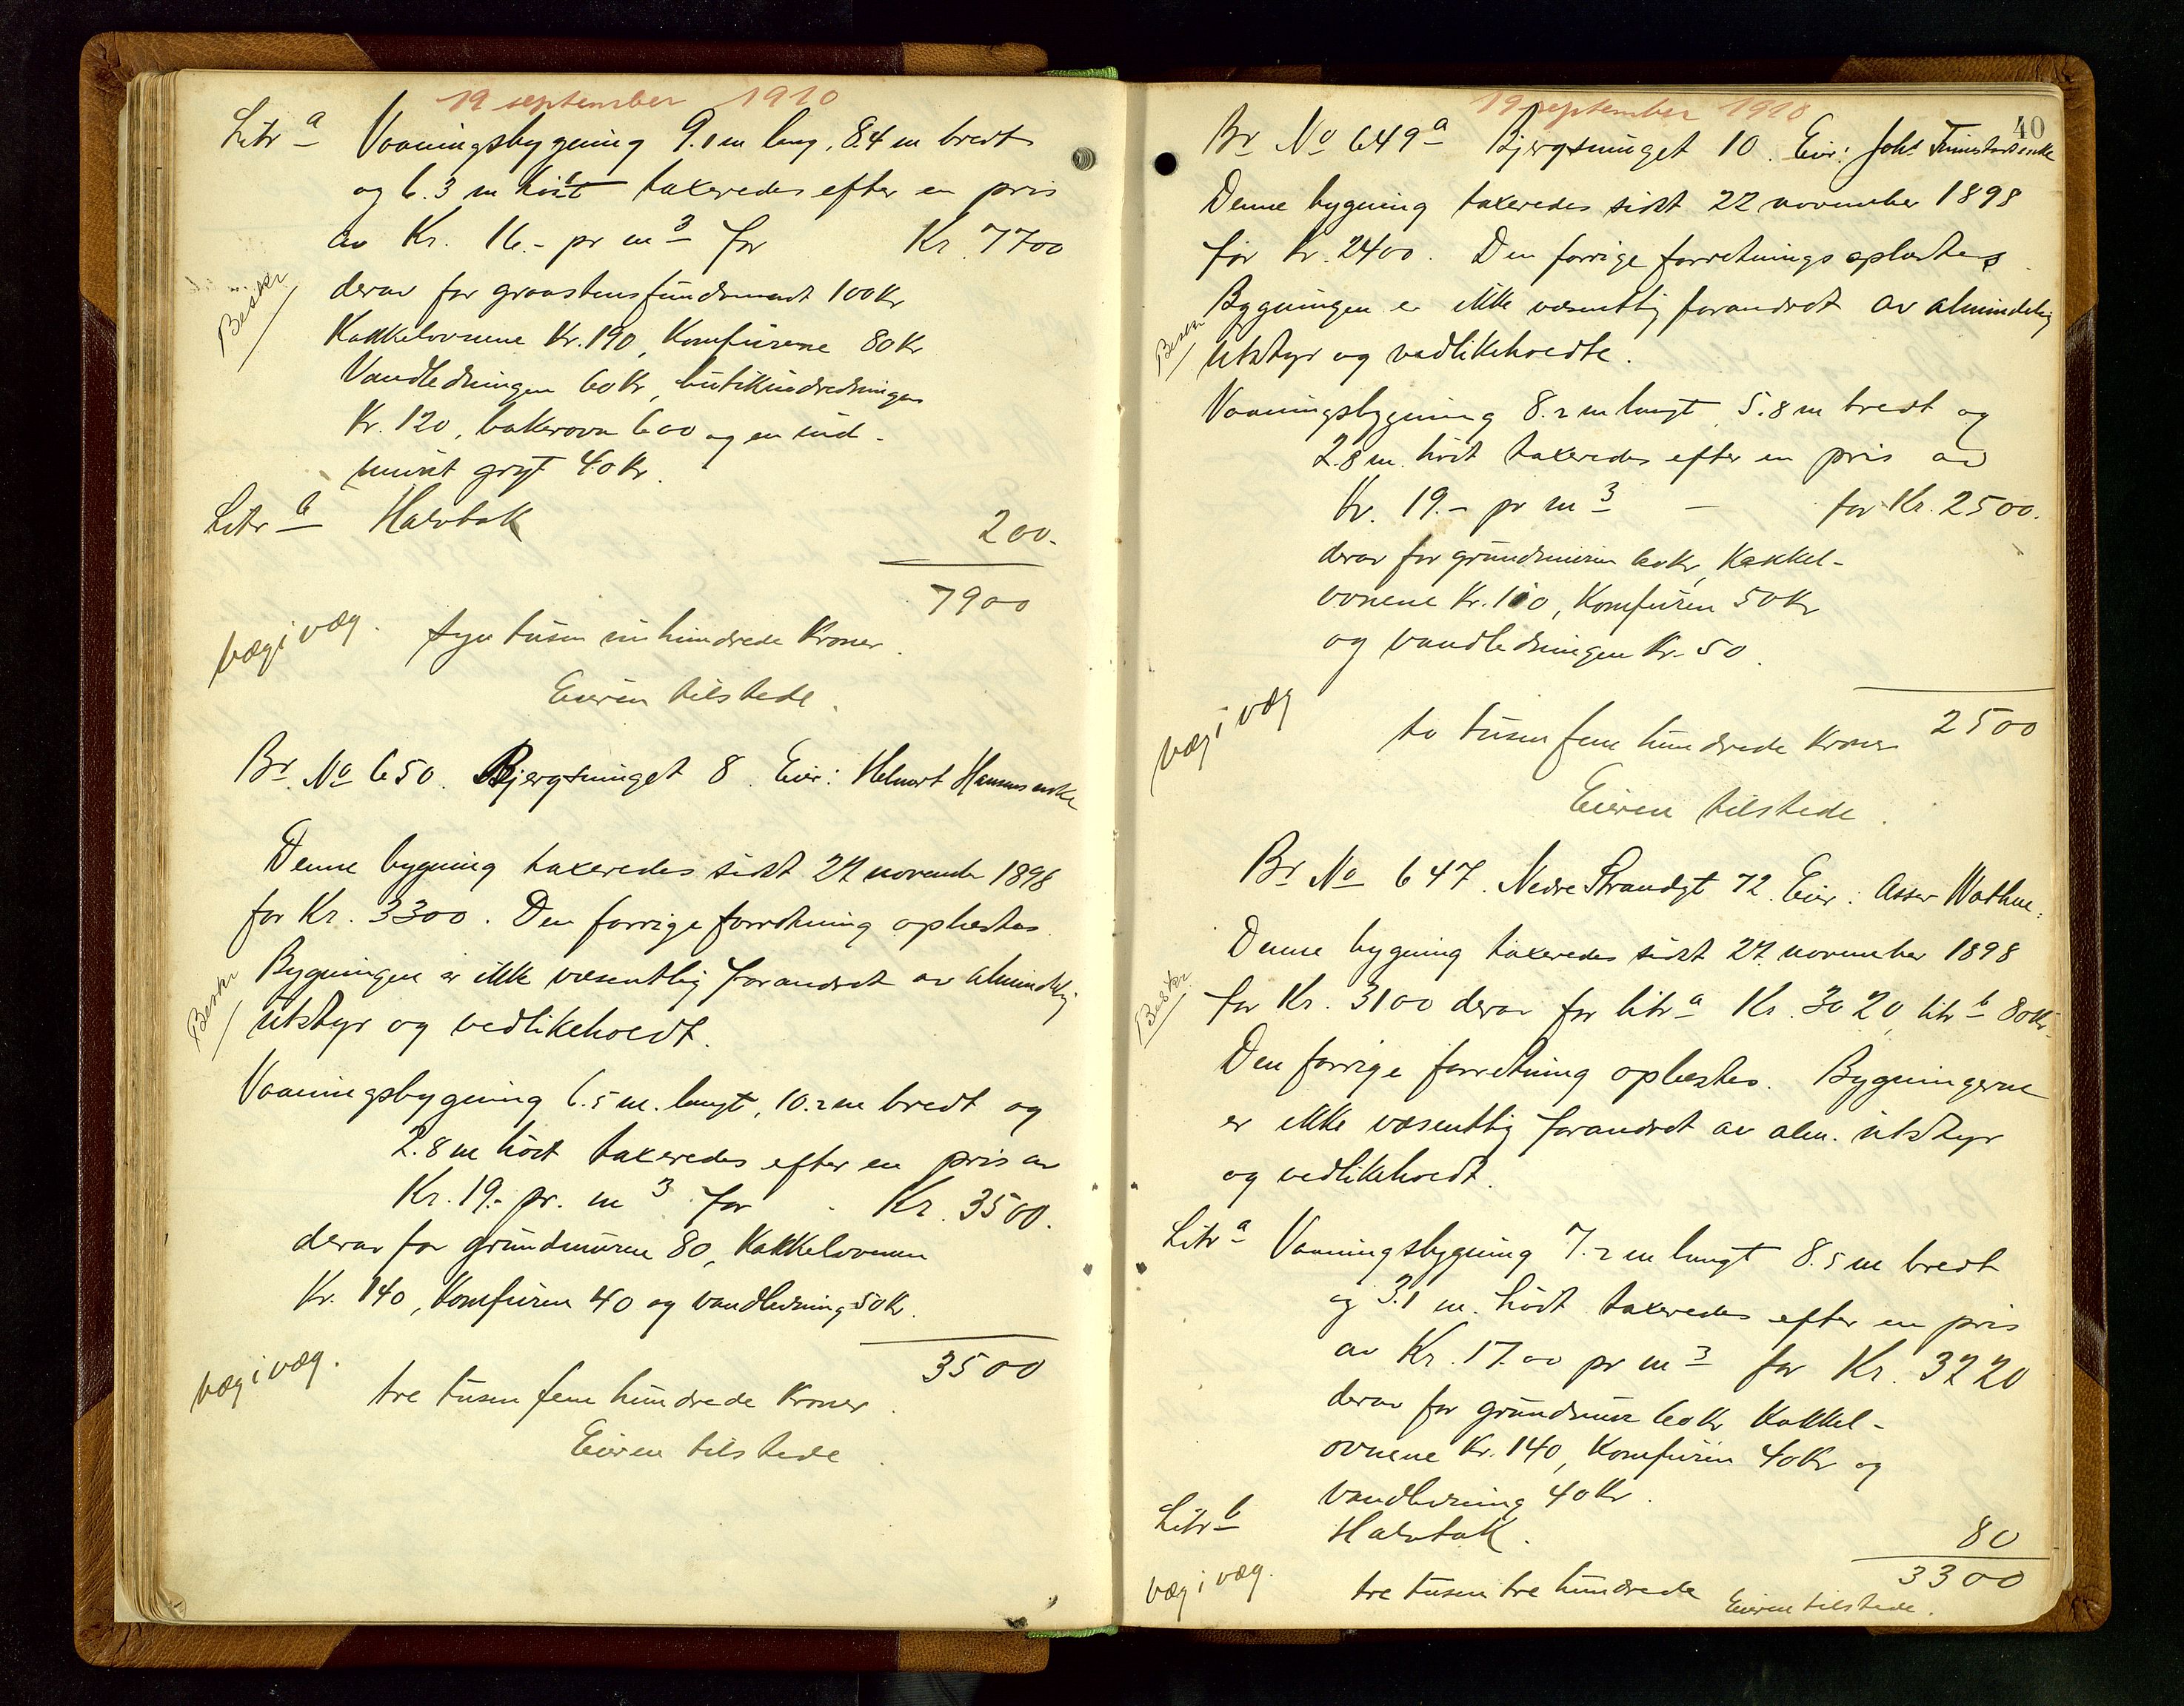 19 september 1910
Litr a Vaaningsbygning 9.1 m lang, 8.4 m bredt
og 6.3 m höit taxeredes efter en pris
av Kr. 16.- pr m3 for Kr. 7700
Beskr
derav for graastensfundament 100 Kr
Kakkelovnene Kr. 190, Komfürene 80 Kr
Vandledningen 60 Kr, bütikindredningen
Kr. 120, bakerovn 600 og en ind-
müret gryt 40 Kr.
Litr b Halvtak 200.
7900
væg i væg. syv tüsen ni hündrede Kroner.
Eieren tilstede.
Br. No 650. Bjergsmuget 8. Eier: Helmert Hansens enke
Denne bygning taxeredes sidst 22 november 1898
for Kr. 3300. Den forrige forretning oplæstes.
Beskr
Bygningen er ikke væsentlig forandret av almindelig
ütstyr og vedlikeholdt.
Vaaningsbygning 6.5 m. langt, 10.2 m bredt og
2.8 m höit taxeredes efter en pris av
Kr. 19.- pr. m3 for Kr. 3500.
derav for gründmüren 80, Kakkelovnen
Kr. 140, Komfüren 40 og vandledning 50 Kr.
3500
væg i væg. tre tüsen fem hündrede Kroner.
Eieren tilstede.
19 september 1910
40
Br No 649a Bjergsmuget 10. Eier: Johs enke
Denne bygning taxeredes sidst 22 november 1898
for Kr. 2400. Den forrige forretnings oplæstes.
Beskr
Bygningen er ikke væsentlig forandret av almindelig
ütstyr og vedlikeholdte.
Vaaningsbygning 8.2 m langt 5.8 m bredt og
2.8 m. höit taxeredes efter en pris av
Kr. 19.- pr m3 - for Kr. 2500.
derav for gründmüren 60 Kr, Kakkel-
ovnene Kr. 100, Komfüren 50 Kr
og vandledningen Kr. 50.
2500
væg i væg to tüsen fem hündrede kroner
Eieren tilstede.
Br No 647. Nedre Strandgt 72. Eier: Asser Wathne.
Denne bygning taxeredes sidst 22. november 1898
Beskr.
for Kr. 3100 derav for litr a Kr. 3020, litr b 80 Kr.
Den forrige forretning oplæstes. Bygningerne
er ikke væsentlig forandret av alm. ütstyr
og vedlikeholdt.
Litr a Vaaningsbygning 7.2 m langt 8.5 m bredt
og 3.1 m. höit taxeredes efter en pris
av Kr. 17.00 pr m3 for Kr. 3220
derav for gründmür 60 Kr Kakkel-
ovnene Kr. 140, Komfüren 40 Kr og
vandledning 40 Kr.
Litr b Halvtak. 80
3300
væg i væg. tre tüsen tre hündrede
Eieren tilstede.